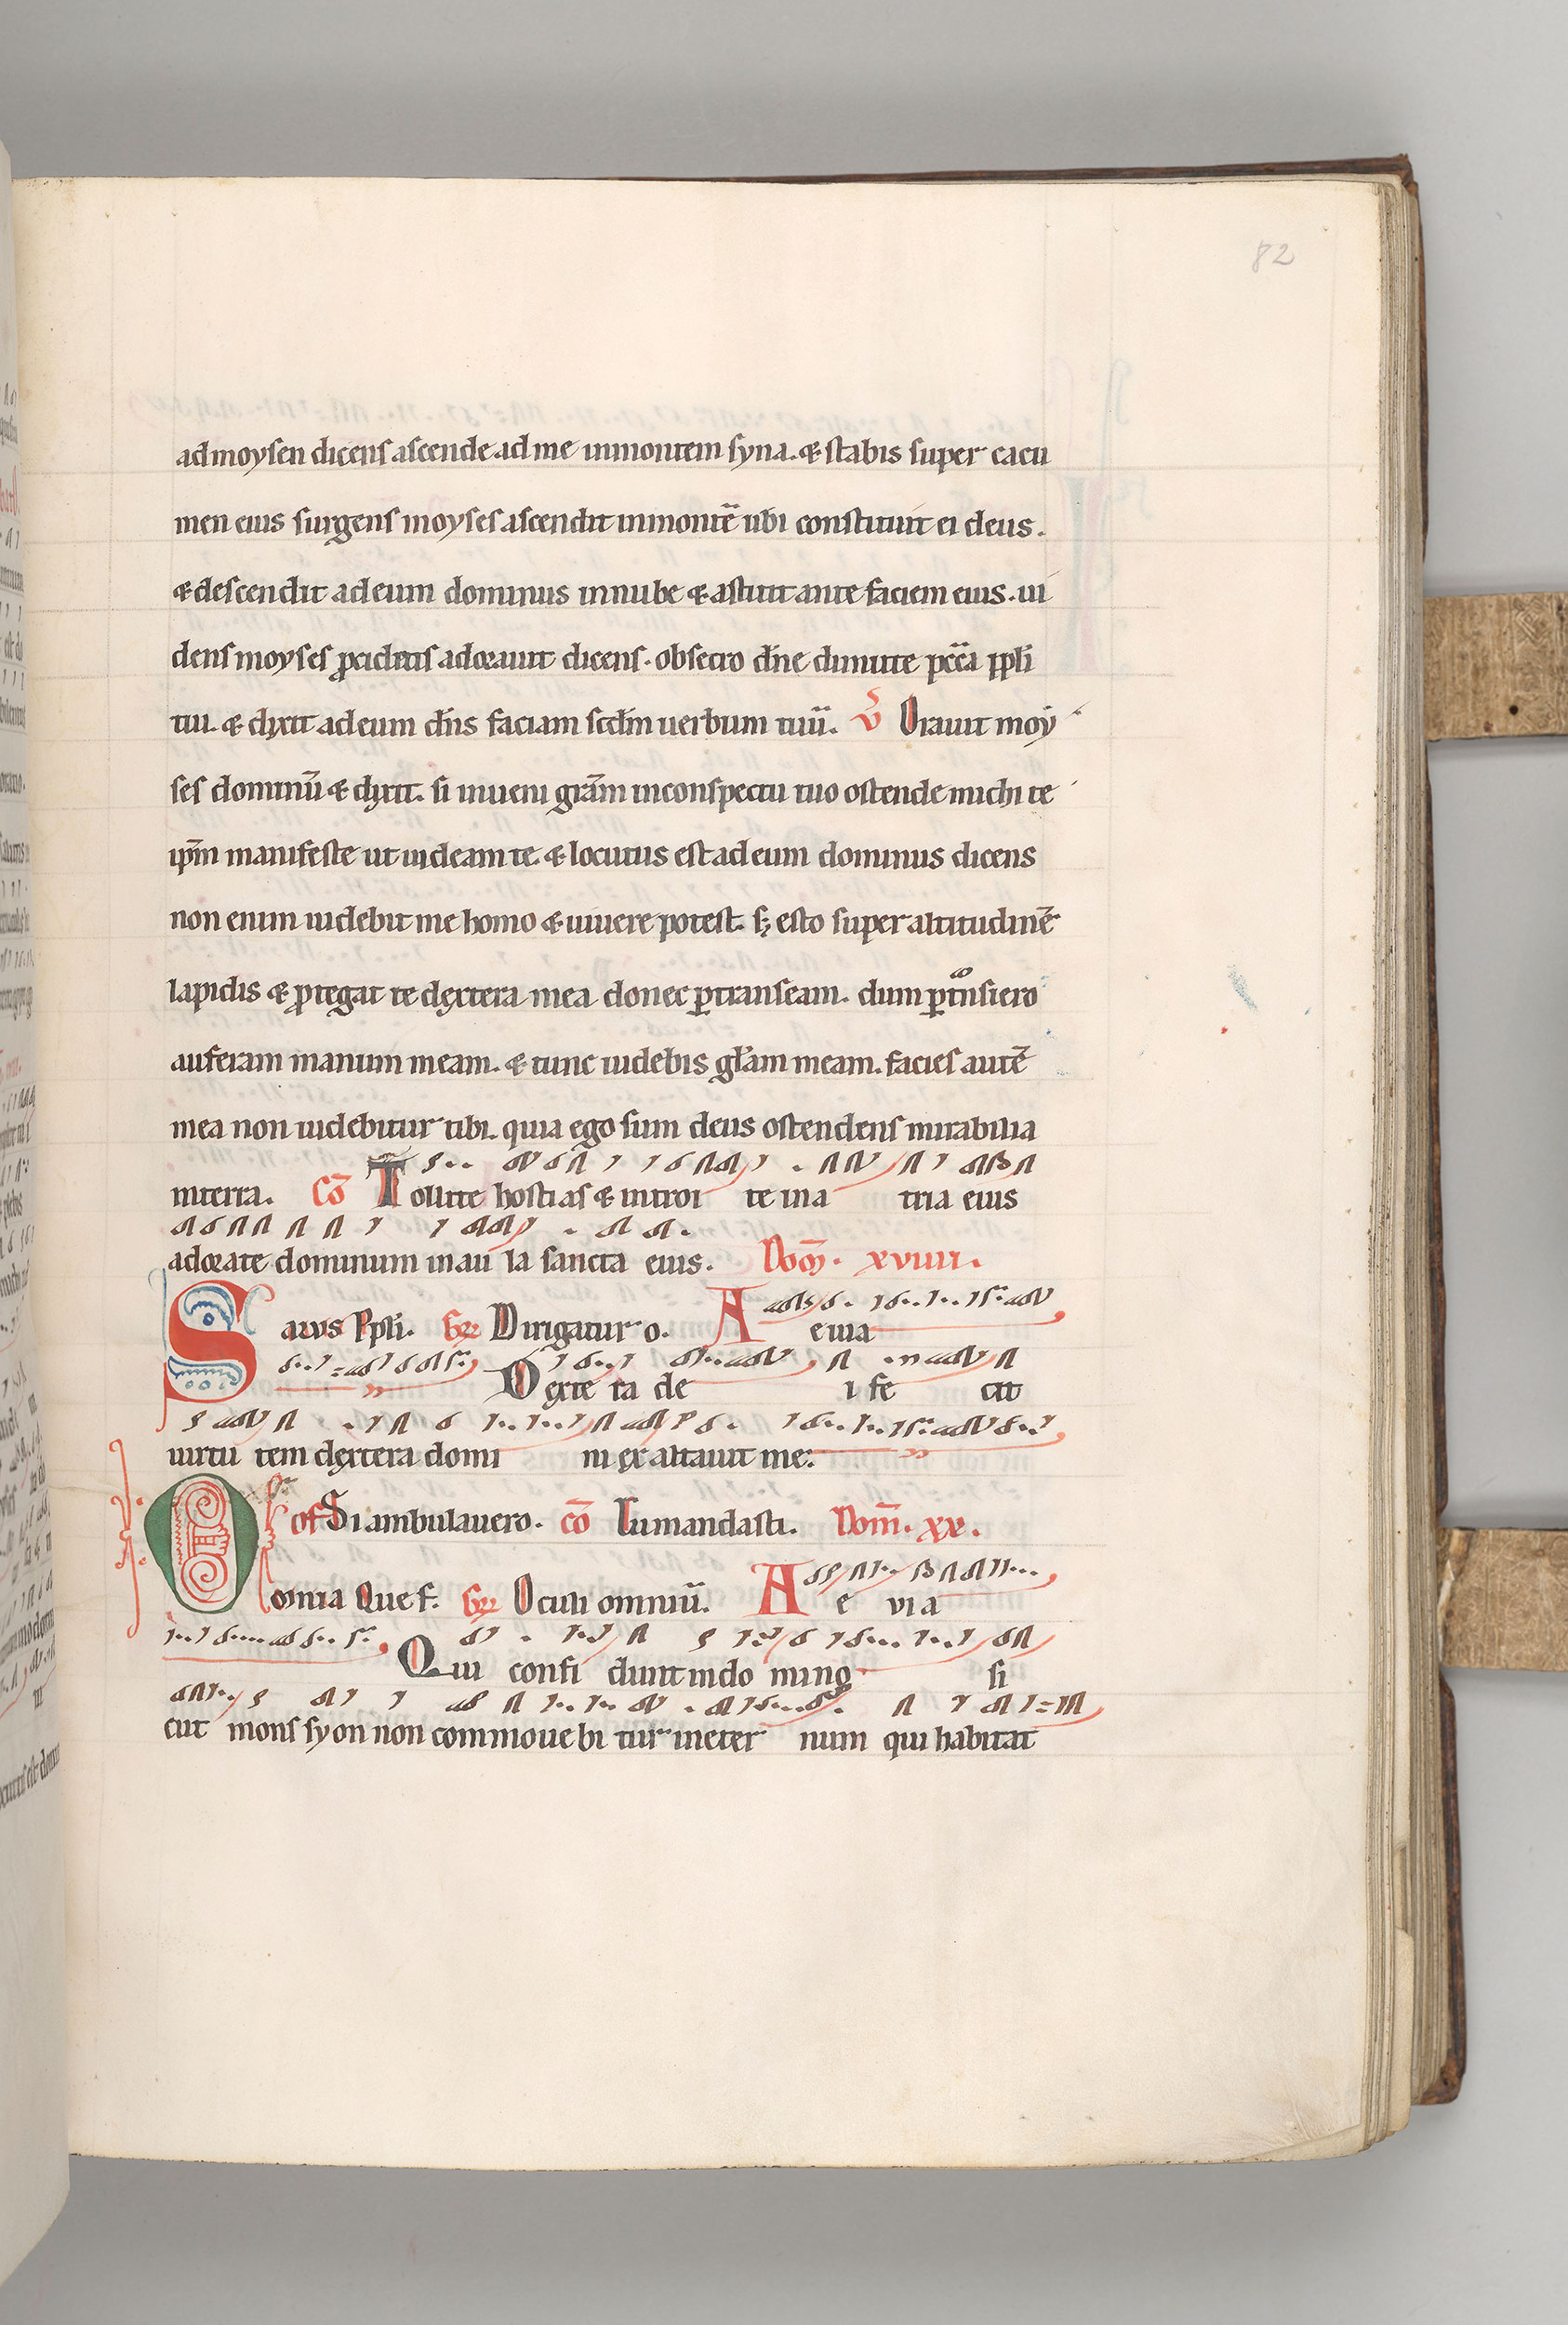 82
ad moysen dicens ascende ad me inmontem syna. & stabis super cacu
men eius surgens moyses ascendit inmontē ubi constituit ei deus.
& descendit ad eum dominus innube & astitit ante faciem eius. ui
dens moyses ꝓcidens adorauit dicens. obsecro dn̄e dimitte pccā ppl̄i
tui. & dixit ad eum dn̄s faciam scdm̄ uerbum tuū. V Orauit moy
ses dominū & dixit. si inueni grām inconspectu tuo ostende michi te
ipm̄ manifeste ut uideam te. & locutus est ad eum dominus dicens
non enim uidebit me homo & uiuere potest. sꝫ esto super altitudinē
lapidis & ꝓtegat te dextera mea donec ꝑtranseam. dum ꝑtnsiero
auferam manum meam. & tunc uidebis glām meam. facies autē
mea non uidebitur tibi. quia ego sum deus ostendens mirabilia
interra. Cō Tollite hostias & introi te ina tria eius
adorate dominum inau la sancta eius. Dom̄. xviiii.
Salus Ppl̄i. Gr Dirigatur o. A euia
Dexte ra de i fe cit
uirtu tem dextera domi ni exaltauit me:
Of Si ambulauero. cō Tu mandasti. Dom̄. xx.
Omnia Que f. Gr Oculi omniū. A e via
Qui confi dunt indo mino si
cut mons syon non commouebi tur ineter num qui habitat